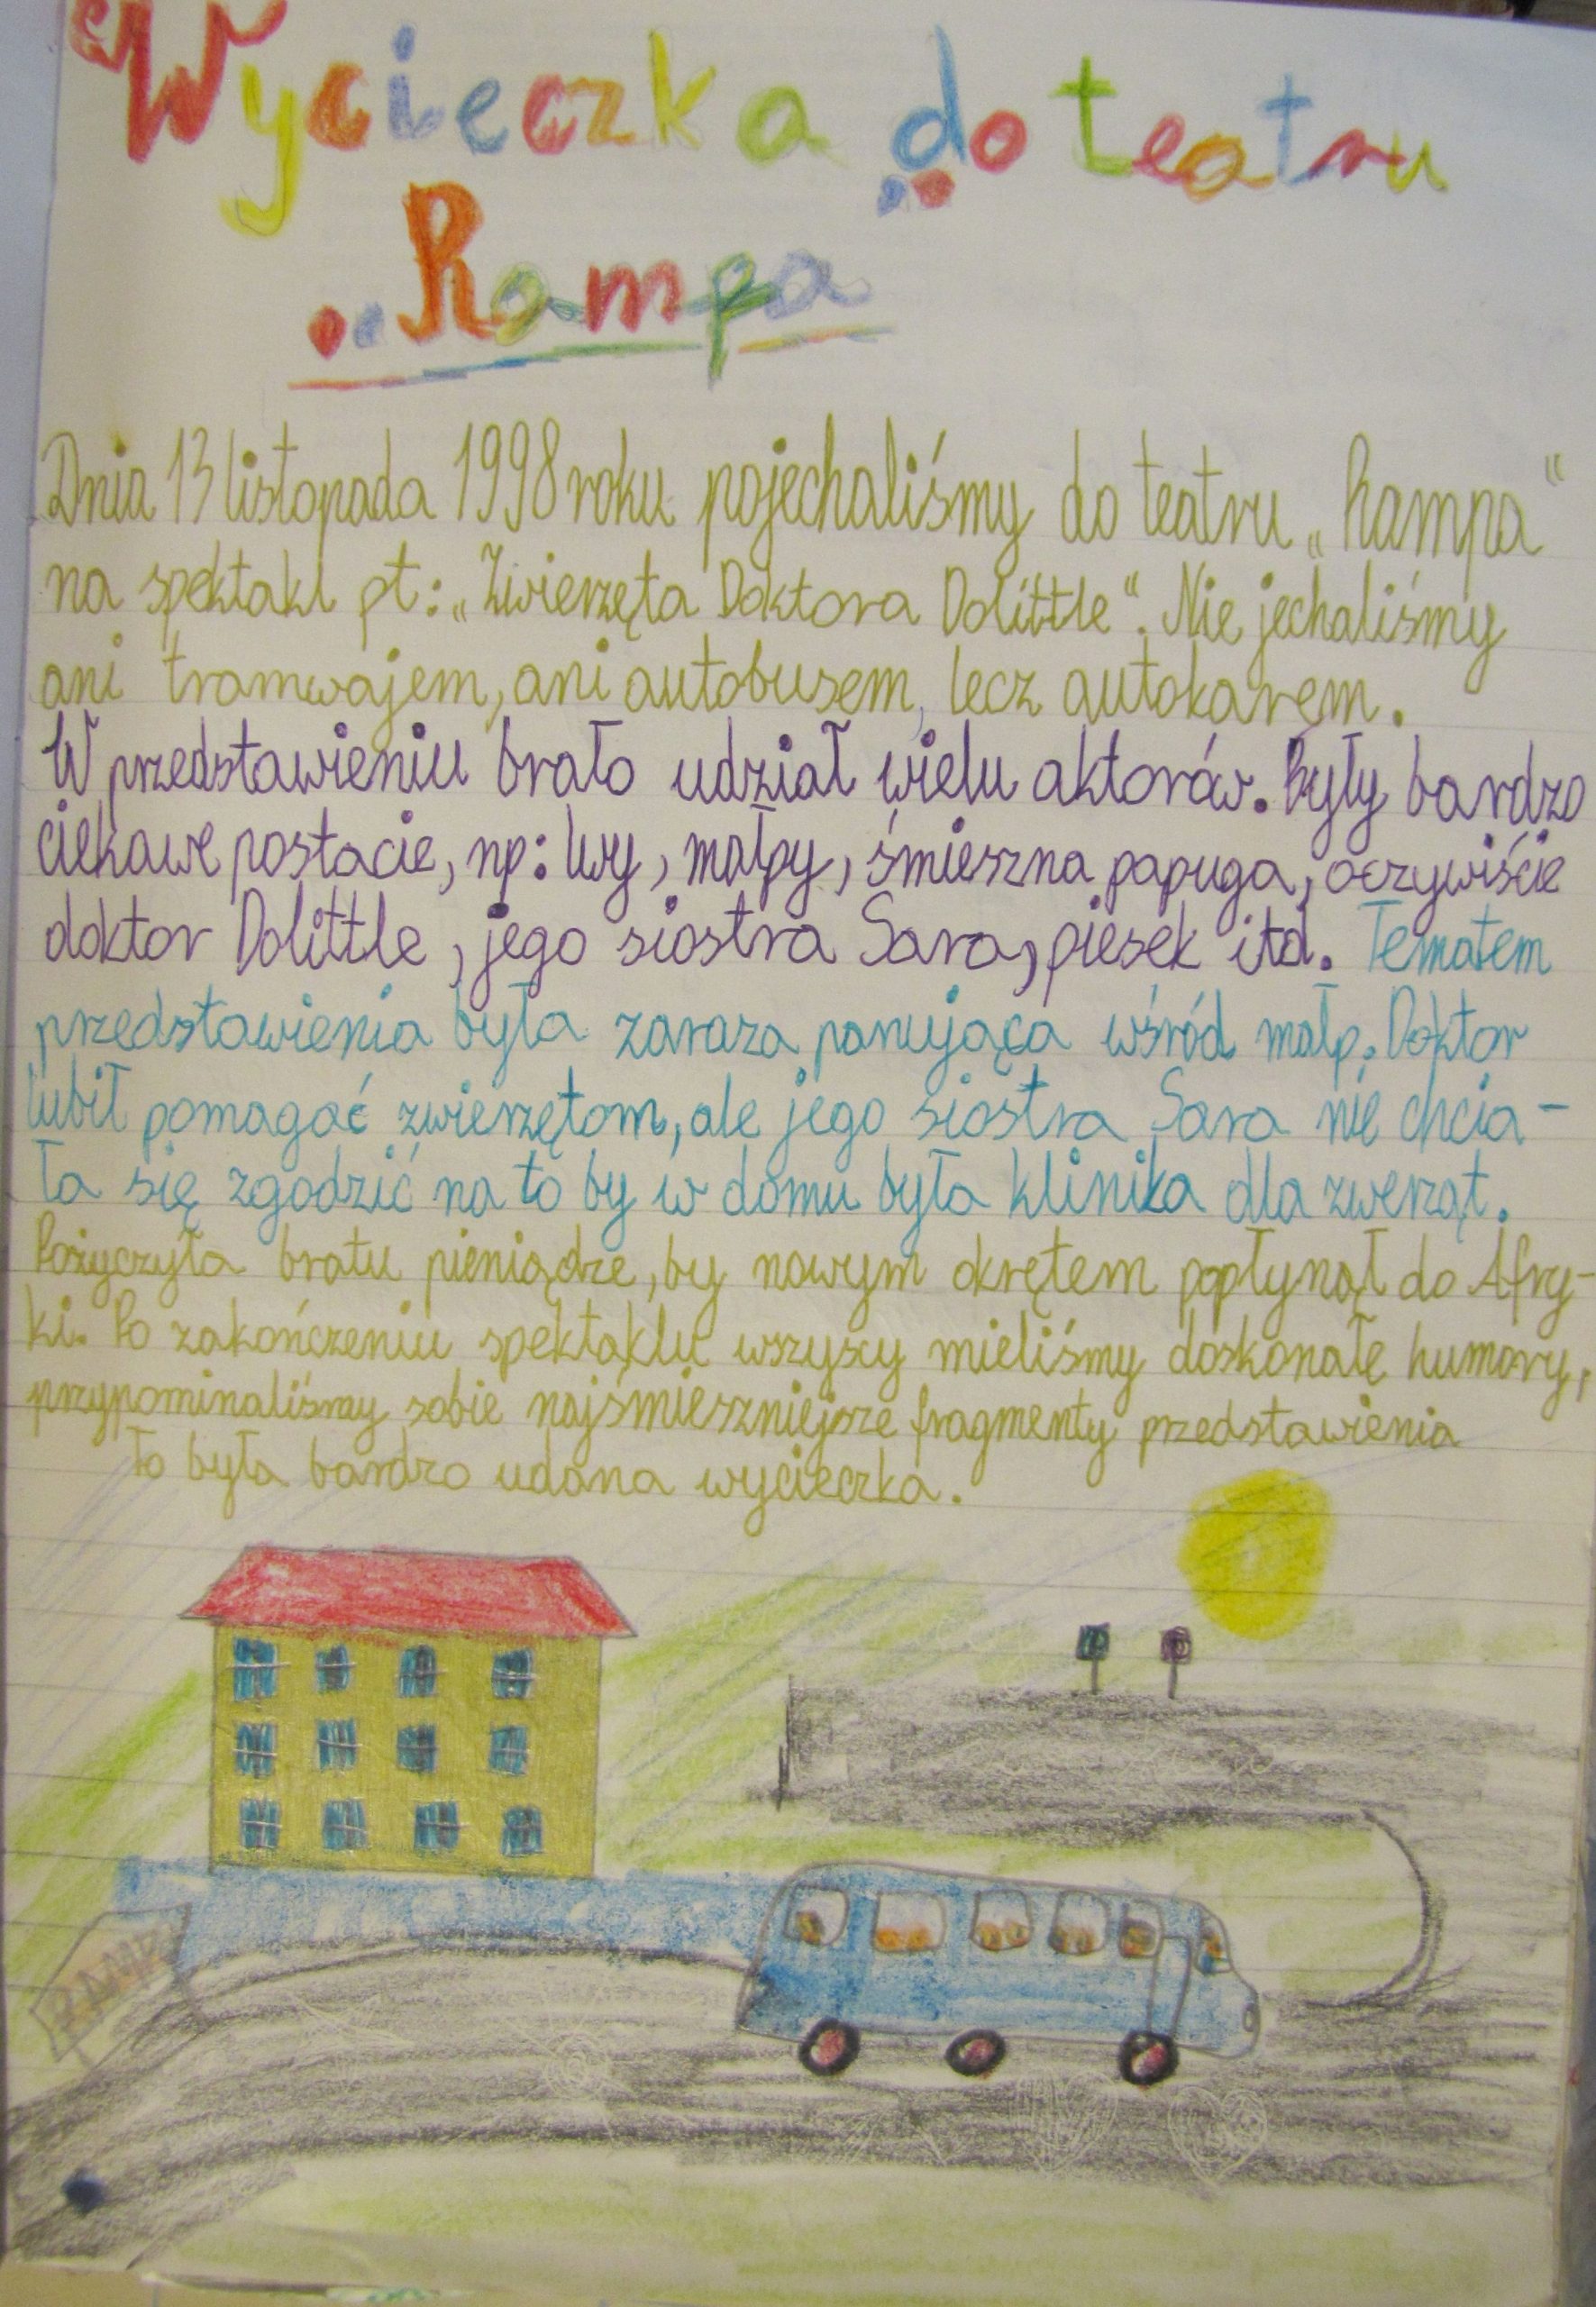 Wycieczka do teatru
„Rampa”
Dnia 13 listopada 1998 roku pojechaliśmy do teatru „Rampa“
na spektakl pt: „Zwierzęta Doktora Dolittle“. Nie jechaliśmy
ani tramwajem, ani autobusem, lecz autokarem.
W przedstawieniu brało udział wielu aktorów. Były bardzo
ciekawe postacie, np: lwy, małpy, śmieszna papuga, oczywiście
doktor Dolittle, jego siostra Sara, piesek itd. Tematem
przedstawienia była zaraza panująca wśród małp. Doktor
lubił pomagać zwierzętom, ale jego siostra Sara nie chcia-
ła się zgodzić na to by w domu była klinika dla zwierząt.
Pożyczyła bratu pieniądze, by nowym okrętem popłynął do Afry-
ki. Po zakończeniu spektaklu wszyscy mieliśmy doskonałe humory,
przypominaliśmy sobie najśmieszniejsze fragmenty przedstawienia
To była bardzo udana wycieczka.
RAMPA